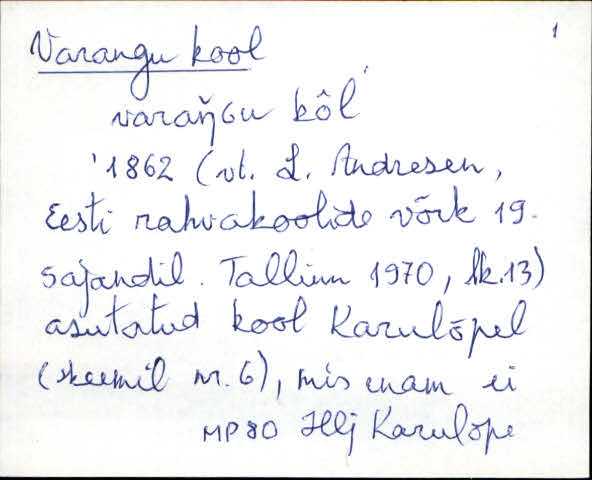 1
Varangu kool
varaŋ̆ɢu kōl´
'1862 (vt. L. Andresen,
Eesti rahvakoolide võrk 19.
sajandil. Tallinn 1970, lk.13)
asutatud kool Karulõpel
(skeemil nr. 6), mis enam ei
MP80 Hlj Karulõpe